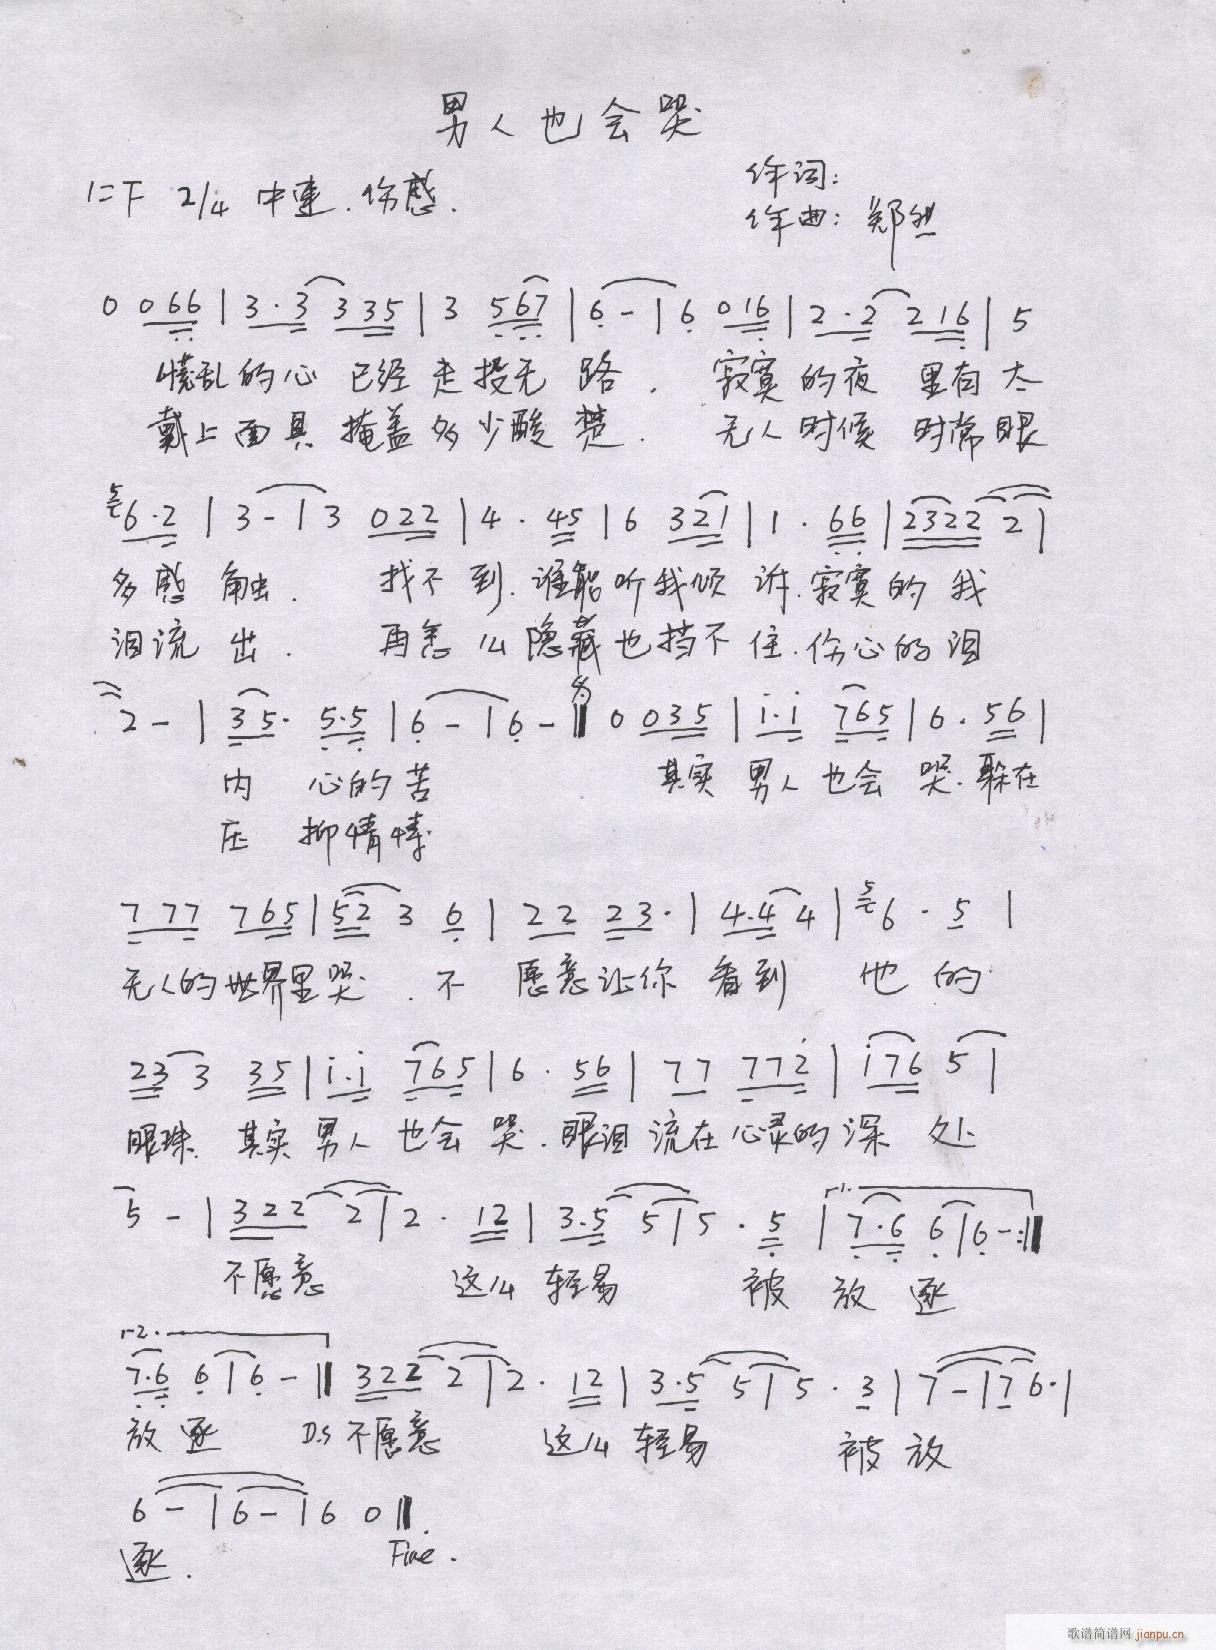 男人也会哭
作词:
1=F 2/4 中速.伤感.
作曲: 郑
0 066 | 3·3 335 | 3 567 | 6 - | 6 016 | 2·2 216 | 5
慌乱的心 已经走投无路. 寂寞的夜 里有太
戴上面具 掩盖多少酸楚. 无人时候 时常眼
5 6·2 | 3 - | 3 022 | 4 · 45 | 6 321 | 1 · 66 | 2322 2 |
多感触. 找不到.谁能听我倾诉.寂寞的我
泪流出. 再怎么隐藏也挡不住.伤心的泪
2 - | 35· 5·5 | 6 - | 6 - || 0 035 | i·i 765 | 6 · 56 |
内 心的苦 其实 男人 也会 哭.躲在
压 抑情愫
7 77 765 | 52 3 6 | 22 23· | 4·4 4 | 5 6 · 5 |
无人的世界里哭. 不 愿意让你 看到 他 的
23 3 35 | i·i 765 | 6 · 56 | 77 772 | i76 5 |
眼珠. 其实 男人 也会 哭.眼泪 流在心灵的深 处
5 - | 322 2 | 2 · 12 | 3·5 5 | 5 · 5 | 1. 7·6 6 | 6 - :||
不愿意 这么 轻易 被 放 逐
2. 7·6 6 | 6 - || 322 2 | 2 · 12 | 3·5 5 | 5 · 3 | 7 - | 7 6· |
放逐 D.S 不愿意 这么 轻易 被 放
6 - | 6 - | 6 0 ||
逐. Fine.
歌谱简谱网 jianpu.cn